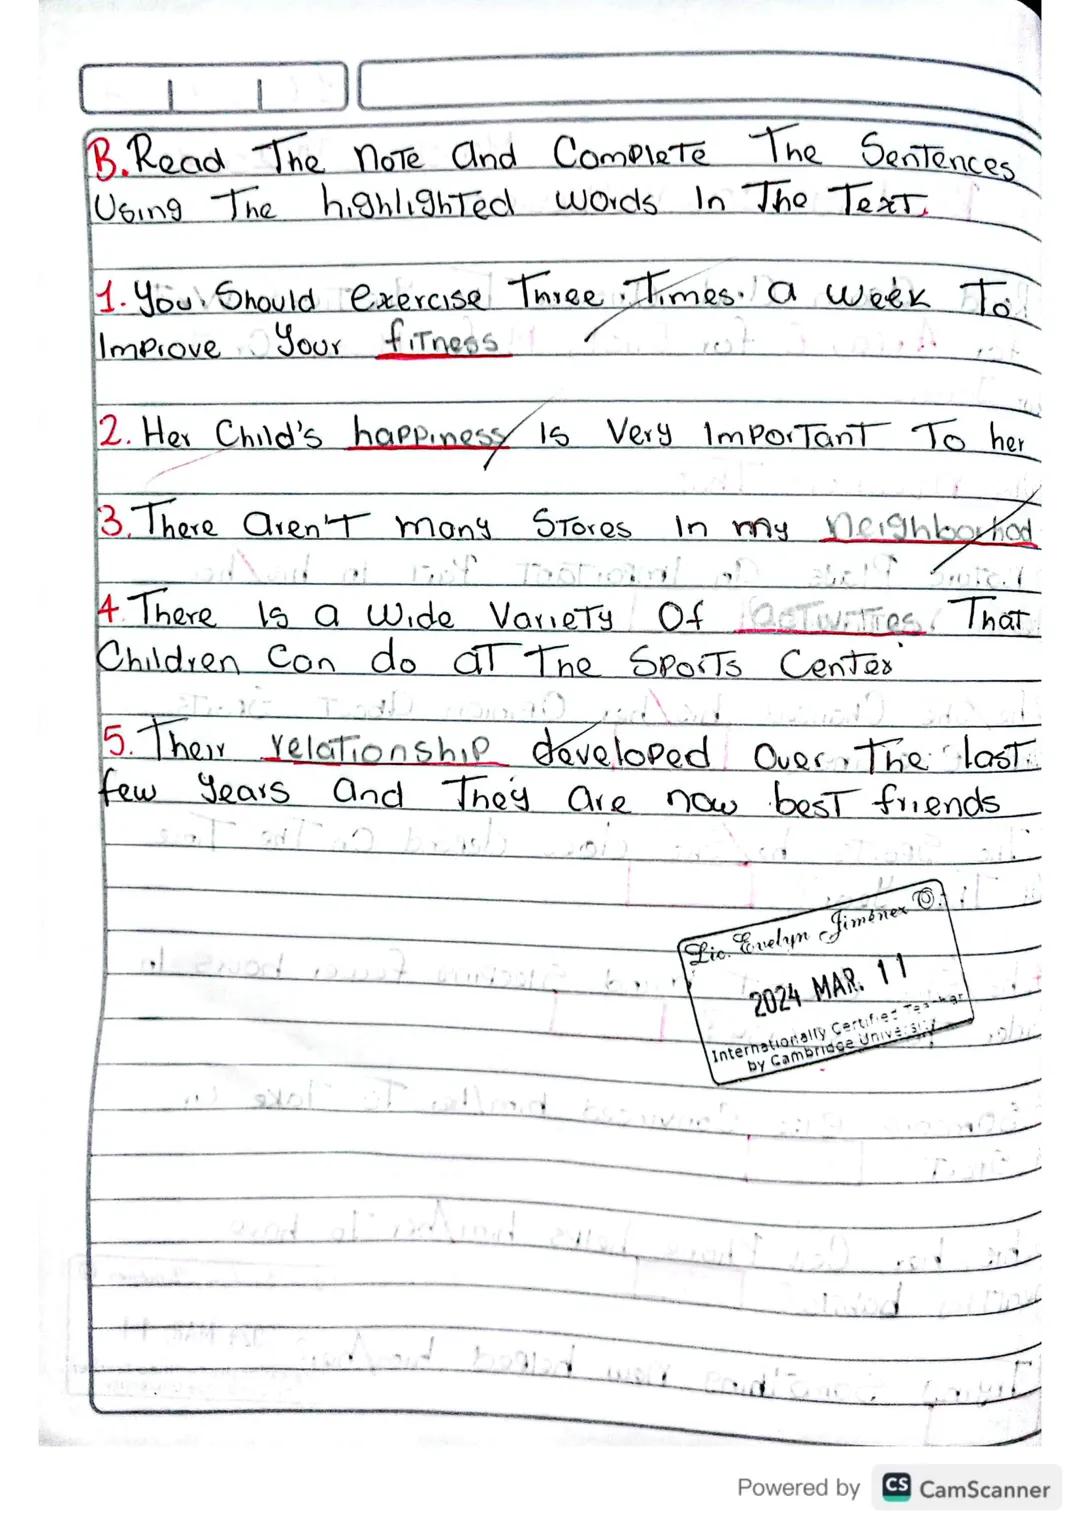 B. Read The note and Complete The Sentences
Using The highlighted words In The Text.
1. You Should exercise Three Times a week To
Improve Your fitness
2. Her Child's happiness Is Very Important To her
3. There aren't many Stores In my neighborhod
4. There Is a Wide Variety Of activities That
Children Can do at The Sports Center
5. Their relationship developed Over The last
few years and They are now best friends
Lic. Evelyn Jiménez O.
2024 MAR. 11
Internationally Certified Teacher
by Cambridge University
Powered by CS CamScanner